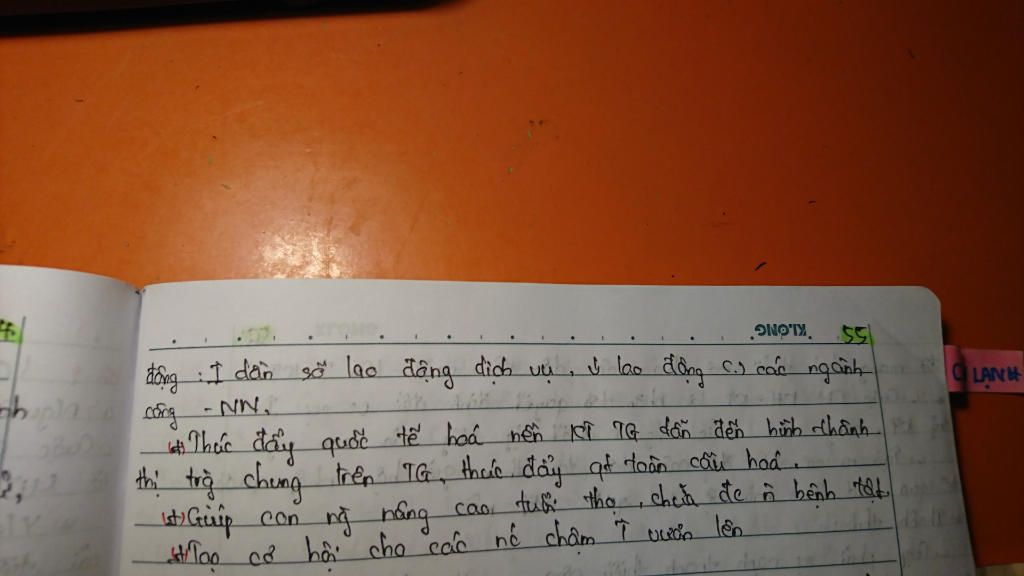 KLONG 55
động : ↑ dần số lao động dịch vụ, ↓ lao động (.) các ngành
công - NN.
(+) Thúc đẩy quốc tế hoá nền KT TG dẫn đến hình thành
thị trg chung trên TG, thúc đẩy qt toàn cầu hoá.
(+) Giúp con ng nâng cao tuổi thọ, chữa đc n bệnh tật
(+) Tạo cơ hội cho các nc chậm ↑ vươn lên
LẠNH